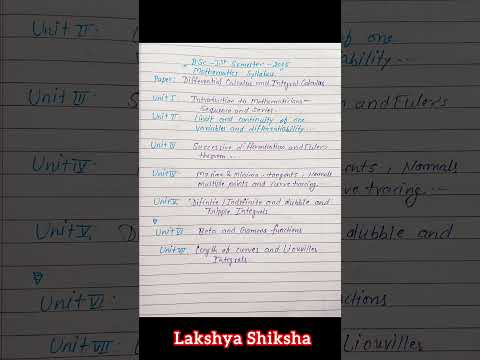 BSc - Ist Semester - 2025
Mathematics Syllabus
Paper: Differential Calculus and Integral Calculus
Unit I: Introduction to Mathematicians
Sequence and Series.
Unit II: Limit and continuity of one
variables and differentiability...
Unit III Successive differentiation and Euler's
theorem...
Unit IV Maxima & Minima, tangents, Normals
multiple points and curve tracing.
Unit V Definite/Indefinite and dubble and
Tripple Integrals
Unit VI Beta and Gamma functions
Unit VII Length of curves and Liouvilles
Integrals.
Unit II:
of one
ability...
Unit III:
and Euler's
Unit IV:
ents, Normals
e tracing...
Unit V.
dubble and
Unit VI:
nctions
Unit VII:
Liouvilles
Lakshya Shiksha